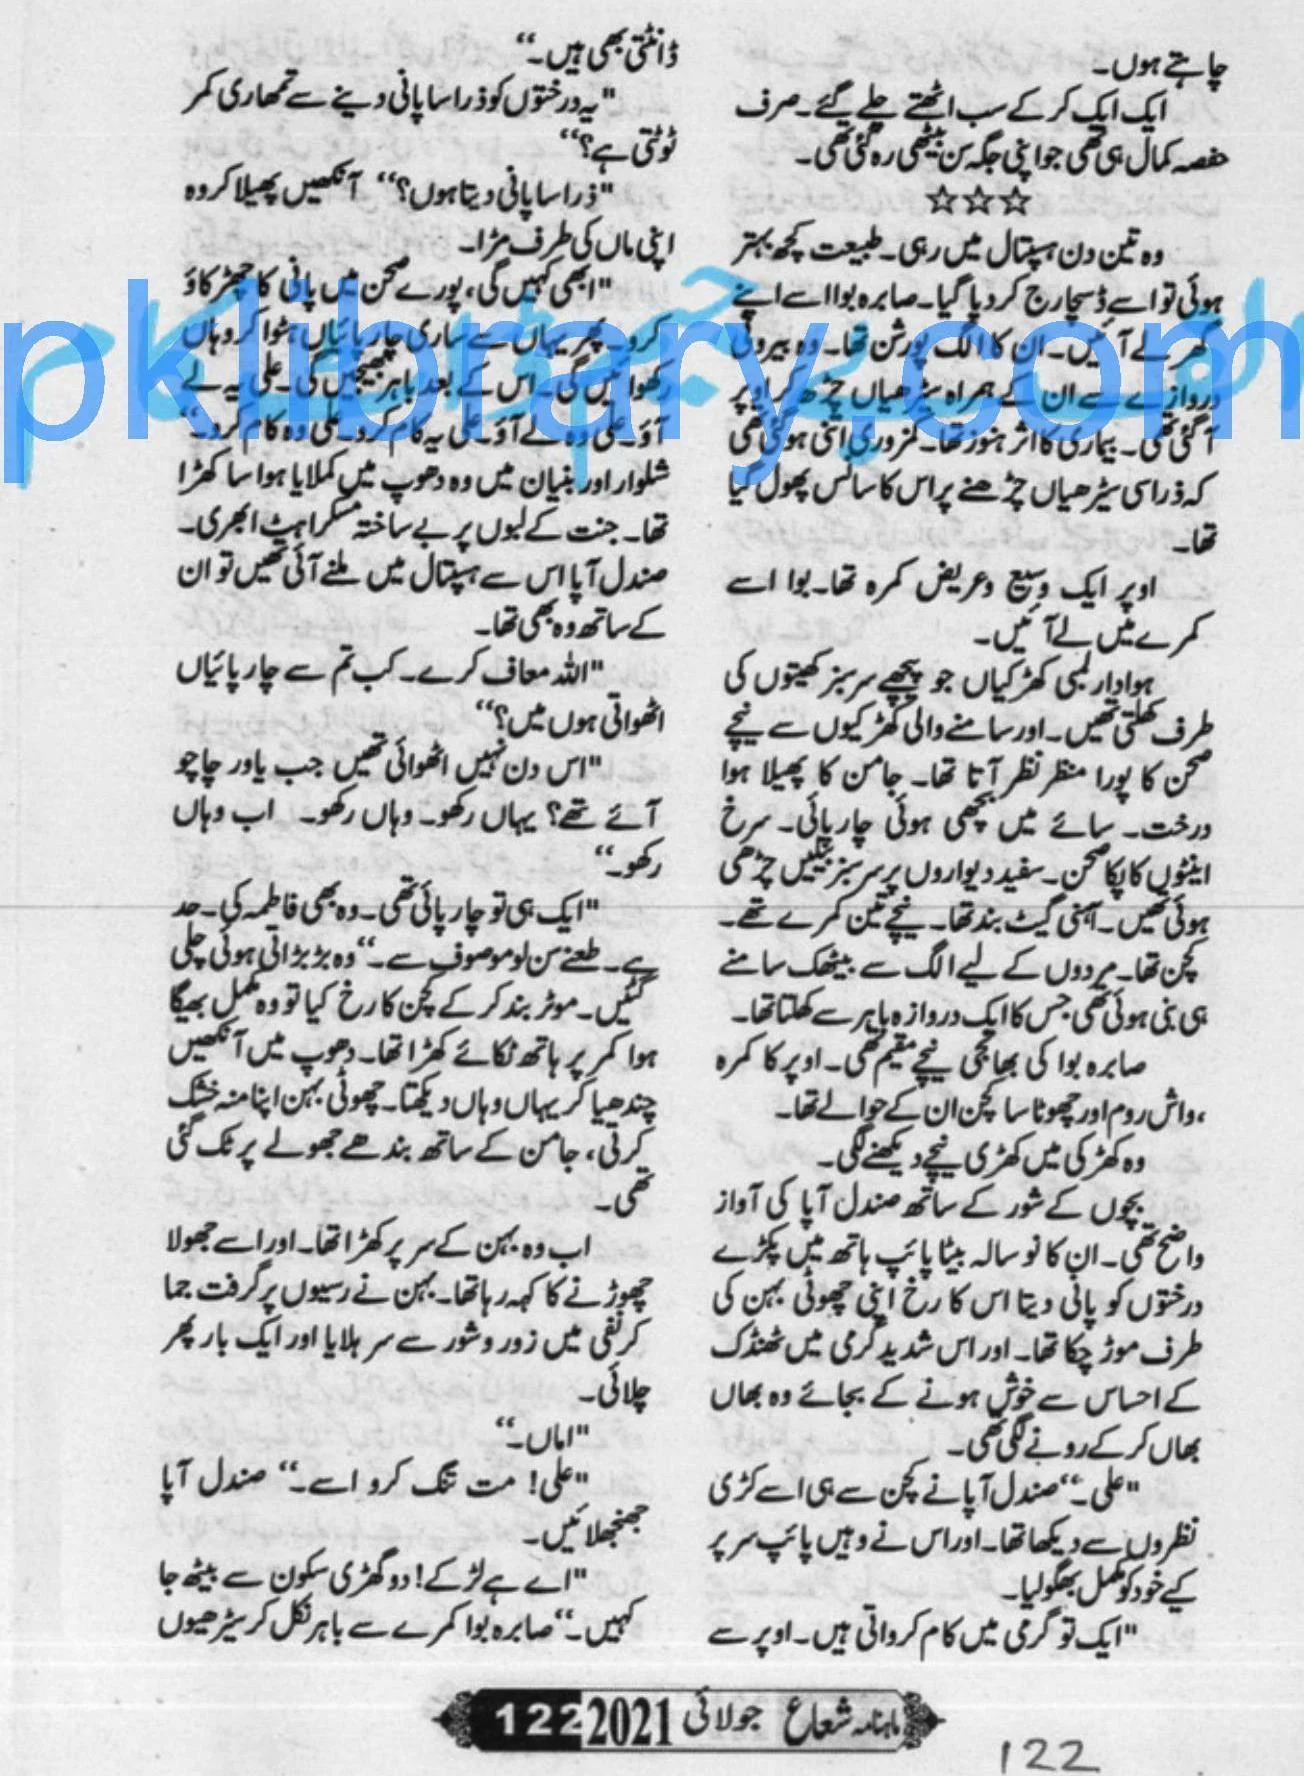 چاہتے ہوں۔
ایک ایک کر کے سب اٹھتے چلے گئے۔ صرف
حفصہ کمال ہی تھی جو اپنی جگہ سن بیٹھی رہ گئی تھی۔
☆☆☆
وہ تین دن ہسپتال میں رہی۔ طبیعت کچھ بہتر
ہوئی تو اسے ڈسچارج کر دیا گیا۔ صابرہ بوا اسے اپنے
گھر لے آئیں۔ ان کا الگ پورشن تھا۔ وہ بیرونی
دروازے سے ان کے ہمراہ سیڑھیاں چڑھ کر اوپر
آ گئی تھی۔ بیماری کا اثر ہنوز تھا۔ کمزوری اتنی ہو گئی تھی
کہ ذرا سی سیڑھیاں چڑھنے پر اس کا سانس پھول گیا
تھا۔
اوپر ایک وسیع و عریض کمرہ تھا۔ بوا اسے
کمرے میں لے آئیں۔
ہوادار لمبی کھڑکیاں جو پیچھے سرسبز کھیتوں کی
طرف کھلتی تھیں۔ اور سامنے والی کھڑکیوں سے نیچے
صحن کا پورا منظر نظر آتا تھا۔ جامن کا پھیلا ہوا
درخت۔ سائے میں بچھی ہوئی چارپائی۔ سرخ
اینٹوں کا پکا صحن۔ سفید دیواروں پر سرسبز بیلیں چڑھی
ہوئی تھیں۔ آہنی گیٹ بند تھا۔ نیچے تین کمرے تھے۔
کچن تھا۔ مردوں کے لیے الگ سے بیٹھک سامنے
ہی بنی ہوئی تھی جس کا ایک دروازہ باہر سے کھلتا تھا۔
صابرہ بوا کی بھانجی نیچے مقیم تھی۔ اوپر کا کمرہ
، واش روم اور چھوٹا سا کچن ان کے حوالے تھا۔
وہ کھڑکی میں کھڑی نیچے دیکھنے لگی۔
بچوں کے شور کے ساتھ صندل آپا کی آواز
واضح تھی۔ ان کا نو سالہ بیٹا پائپ ہاتھ میں پکڑے
درختوں کو پانی دیتا اس کا رخ اپنی چھوٹی بہن کی
طرف موڑ چکا تھا۔ اور اس شدید گرمی میں ٹھنڈک
کے احساس سے خوش ہونے کے بجائے وہ بھاں
بھاں کر کے رونے لگی تھی۔
"علی۔" صندل آپا نے کچن سے ہی اسے کڑی
نظروں سے دیکھا تھا۔ اور اس نے وہیں پائپ سر پر
کیے خود کو مکمل بھگو لیا۔
"ایک تو گرمی میں کام کرواتی ہیں۔ اوپر سے
ڈانٹتی بھی ہیں۔"
"یہ درختوں کو ذرا سا پانی دینے سے تمھاری کمر
ٹوٹتی ہے؟"
"ذرا سا پانی دیتا ہوں؟" آنکھیں پھیلا کر وہ
اپنی ماں کی طرف مڑا۔
"ابھی کہیں گی، پورے صحن میں پانی کا چھڑکاؤ
کرو۔ پھر یہاں سے ساری چارپائیاں ہٹوا کر وہاں
رکھوائیں گی۔ اس کے بعد باہر بھیجیں گی۔ علی یہ لے
آؤ۔ علی وہ لے آؤ۔ علی یہ کام کرو۔ علی وہ کام کرو۔"
شلوار اور بنیان میں وہ دھوپ میں کملایا ہوا سا کھڑا
تھا۔ جنت کے لبوں پر بے ساختہ مسکراہٹ ابھری۔
صندل آپا اس سے ہسپتال میں ملنے آئی تھیں تو ان
کے ساتھ وہ بھی تھا۔
"اللہ معاف کرے۔ کب تم سے چارپائیاں
اٹھواتی ہوں میں؟"
"اس دن نہیں اٹھوائی تھیں جب یاور چاچو
آئے تھے؟ یہاں رکھو۔ وہاں رکھو۔ اب وہاں
رکھو۔"
"ایک ہی تو چارپائی تھی۔ وہ بھی فاطمہ کی۔ حد
ہے۔ طعنے سن لو موصوف سے۔" وہ بڑبڑاتی ہوئی چلی
گئیں۔ موٹر بند کر کے کچن کا رخ کیا تو وہ مکمل بھیگا
ہوا کمر پر ہاتھ ٹکائے کھڑا تھا۔ دھوپ میں آنکھیں
چندھیا کر یہاں وہاں دیکھتا۔ چھوٹی بہن اپنا منہ خشک
کرتی، جامن کے ساتھ بندھے جھولے پر ٹک گئی
تھی۔
اب وہ بہن کے سر پر کھڑا تھا۔ اور اسے جھولا
چھوڑنے کا کہہ رہا تھا۔ بہن نے رسیوں پر گرفت جما
کر نفی میں زور و شور سے سر ہلایا اور ایک بار پھر
چلائی۔
"اماں۔"
"علی! مت تنگ کرو اسے۔" صندل آپا
جھنجھلائیں۔
"اے ہے لڑکے! دو گھڑی سکون سے بیٹھ جا
کہیں۔" صابرہ بوا کمرے سے باہر نکل کر سیڑھیوں
ماہنامہ شعاع جولائی 2021 122
122
pklibrary.com